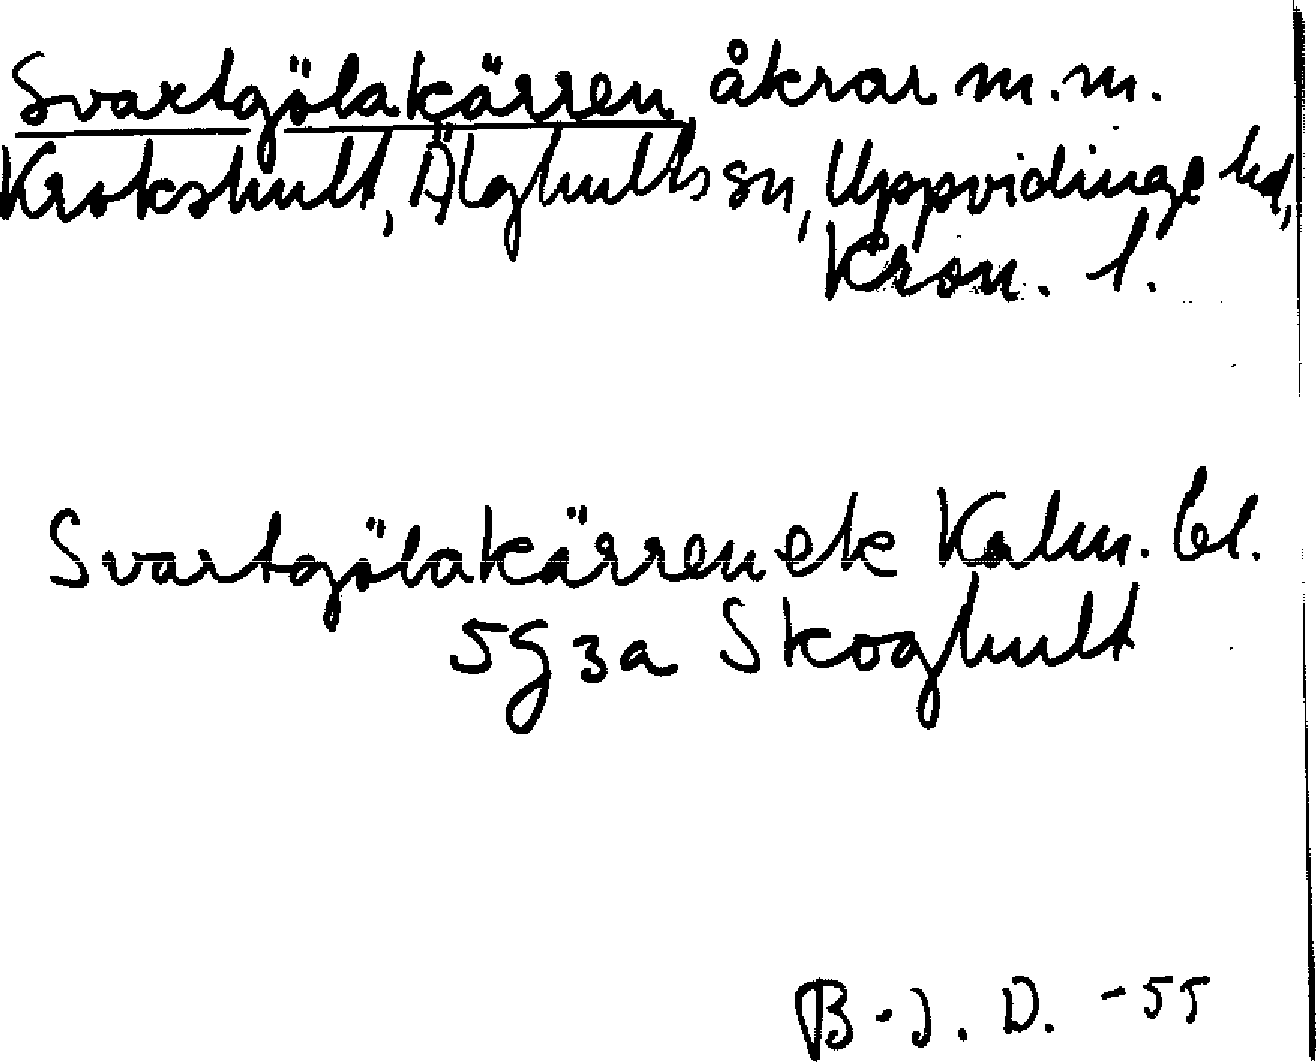 Svartgölakärren åkrar m.m.
Krokshult, Älghults sn, Uppvidinge hd,
Kron. l.
Svartgölakärren ek Kalm. bl.
5g3a Skoghult
B-J. D. -55